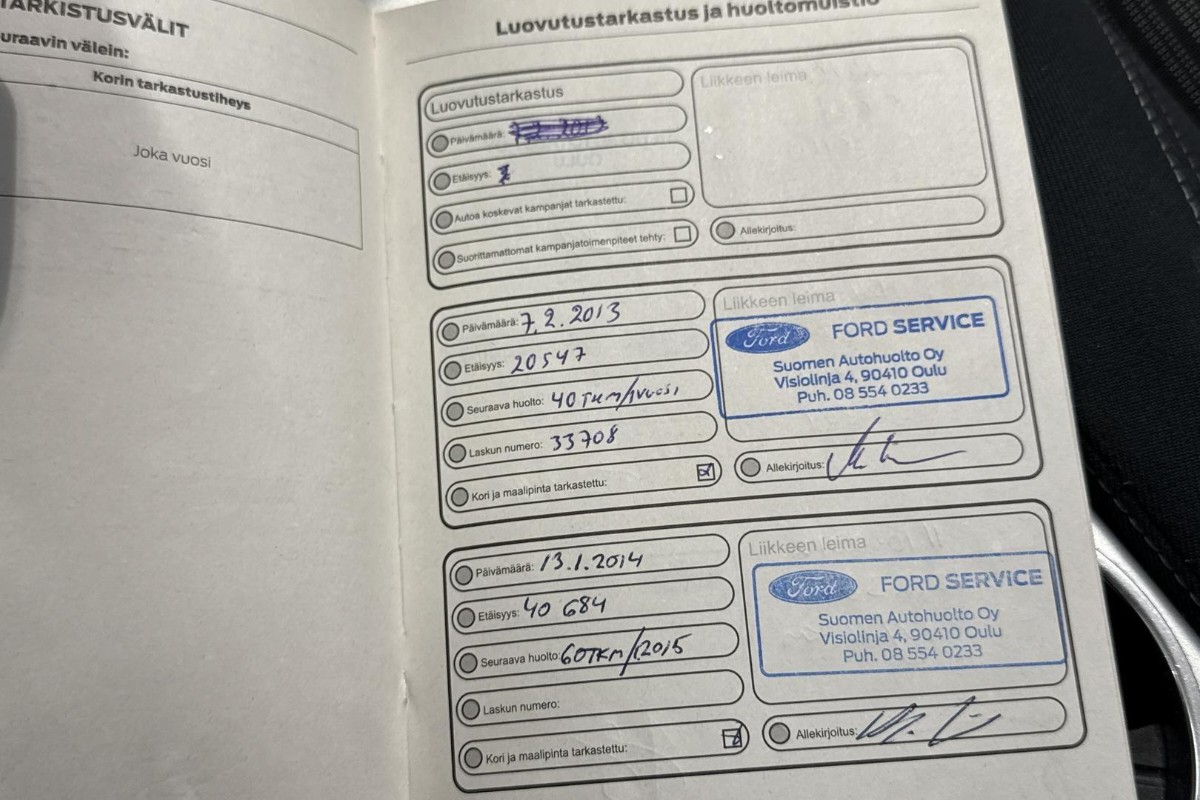 TARKISTUSVÄLIT
uraavin välein:
Korin tarkastustiheys
Joka vuosi
Luovutustarkastus ja huoltomuistio
Luovutustarkastus
Päivämäärä: 7.2.2013
Etäisyys:
Autoa koskevat kampanjat tarkastettu:
Suorittamattomat kampanjatoimenpiteet tehty:
Liikkeen leima
Allekirjoitus:
Päivämäärä: 7.2.2013
Etäisyys: 20547
Seuraava huolto: 40 TKM/1VUOSI
Laskun numero: 33708
Kori ja maalipinta tarkastettu:
Liikkeen leima
Ford FORD SERVICE
Suomen Autohuolto Oy
Visiolinja 4, 90410 Oulu
Puh. 08 554 0233
Allekirjoitus:
Päivämäärä: 13.1.2014
Etäisyys: 40 684
Seuraava huolto: 60TKM/1.2015
Laskun numero:
Kori ja maalipinta tarkastettu:
Liikkeen leima
Ford FORD SERVICE
Suomen Autohuolto Oy
Visiolinja 4, 90410 Oulu
Puh. 08 554 0233
Allekirjoitus: